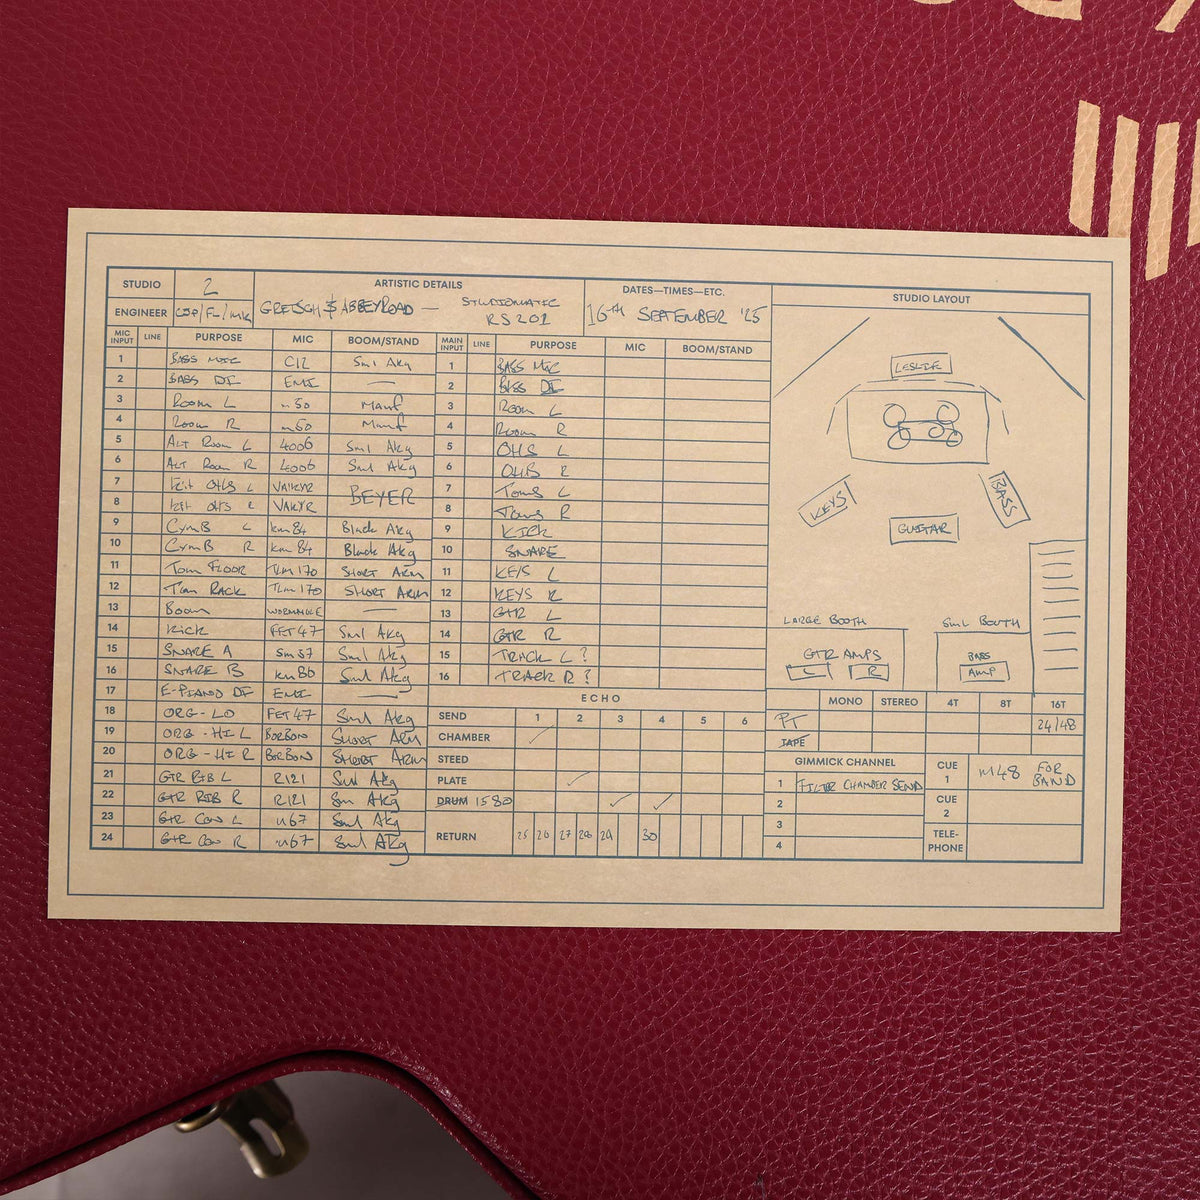 STUDIO 2 ARTISTIC DETAILS DATES—TIMES—ETC. STUDIO LAYOUT
ENGINEER GRETSCH & ABBEY ROAD — STUDIOMATIC RS201 16TH SEPTEMBER '25
MIC INPUT LINE PURPOSE MIC BOOM/STAND
1 BASS MIC C12 Sml Akg
2 BASS DI EMI —
3 Room L m50 Manf
4 Room R m50 Manf
5 ALT Room L 4006 Sml Akg
6 ALT Room R 4006 Sml Akg
7 kit OHS L VALKYR BEYER
8 kit OHS R VALKYR
9 CymB L km84 Black Akg
10 CymB R km84 Black Akg
11 Tom FLOOR TLM 170 SHORT ARM
12 Tom RACK TLM 170 SHORT ARM
13 Boom WORMHOLE —
14 kick FET 47 Sml Akg
15 SNARE A Sm57 Sml Akg
16 SNARE B km86 Sml Akg
17 E-PIANO DI EMI —
18 ORG-LO FET 47 Sml Akg
19 ORG-HI L BORBON SHORT ARM
20 ORG-HI R BORBON SHORT ARM
21 GTR RIB L R121 Sml Akg
22 GTR RIB R R121 Sm Akg
23 GTR Con L u67 Sml Akg
24 GTR Con R u67 Sml AKg
MAIN INPUT LINE PURPOSE MIC BOOM/STAND
1 BASS MIC
2 BASS DI
3 Room L
4 Room R
5 OHS L
6 OHS R
7 Toms L
8 Toms R
9 KICK
10 SNARE
11 KEYS L
12 KEYS R
13 GTR L
14 GTR R
15 TRACK L?
16 TRACK R?
ECHO
SEND 1 2 3 4 5 6
CHAMBER ✓
STEED
PLATE ✓
DRUM 1580 ✓ ✓
RETURN 25 26 27 28 29 30
LESLIE
KEYS
BASS
GUITAR
LARGE BOOTH
GTR AMPS
L R
SML BOOTH
BASS
AMP
MONO STEREO 4T 8T 16T
PT 24/48
TAPE
GIMMICK CHANNEL
1 FILTER CHAMBER SEND
2
3
4
CUE 1 M48 FOR BAND
CUE 2
TELE-
PHONE